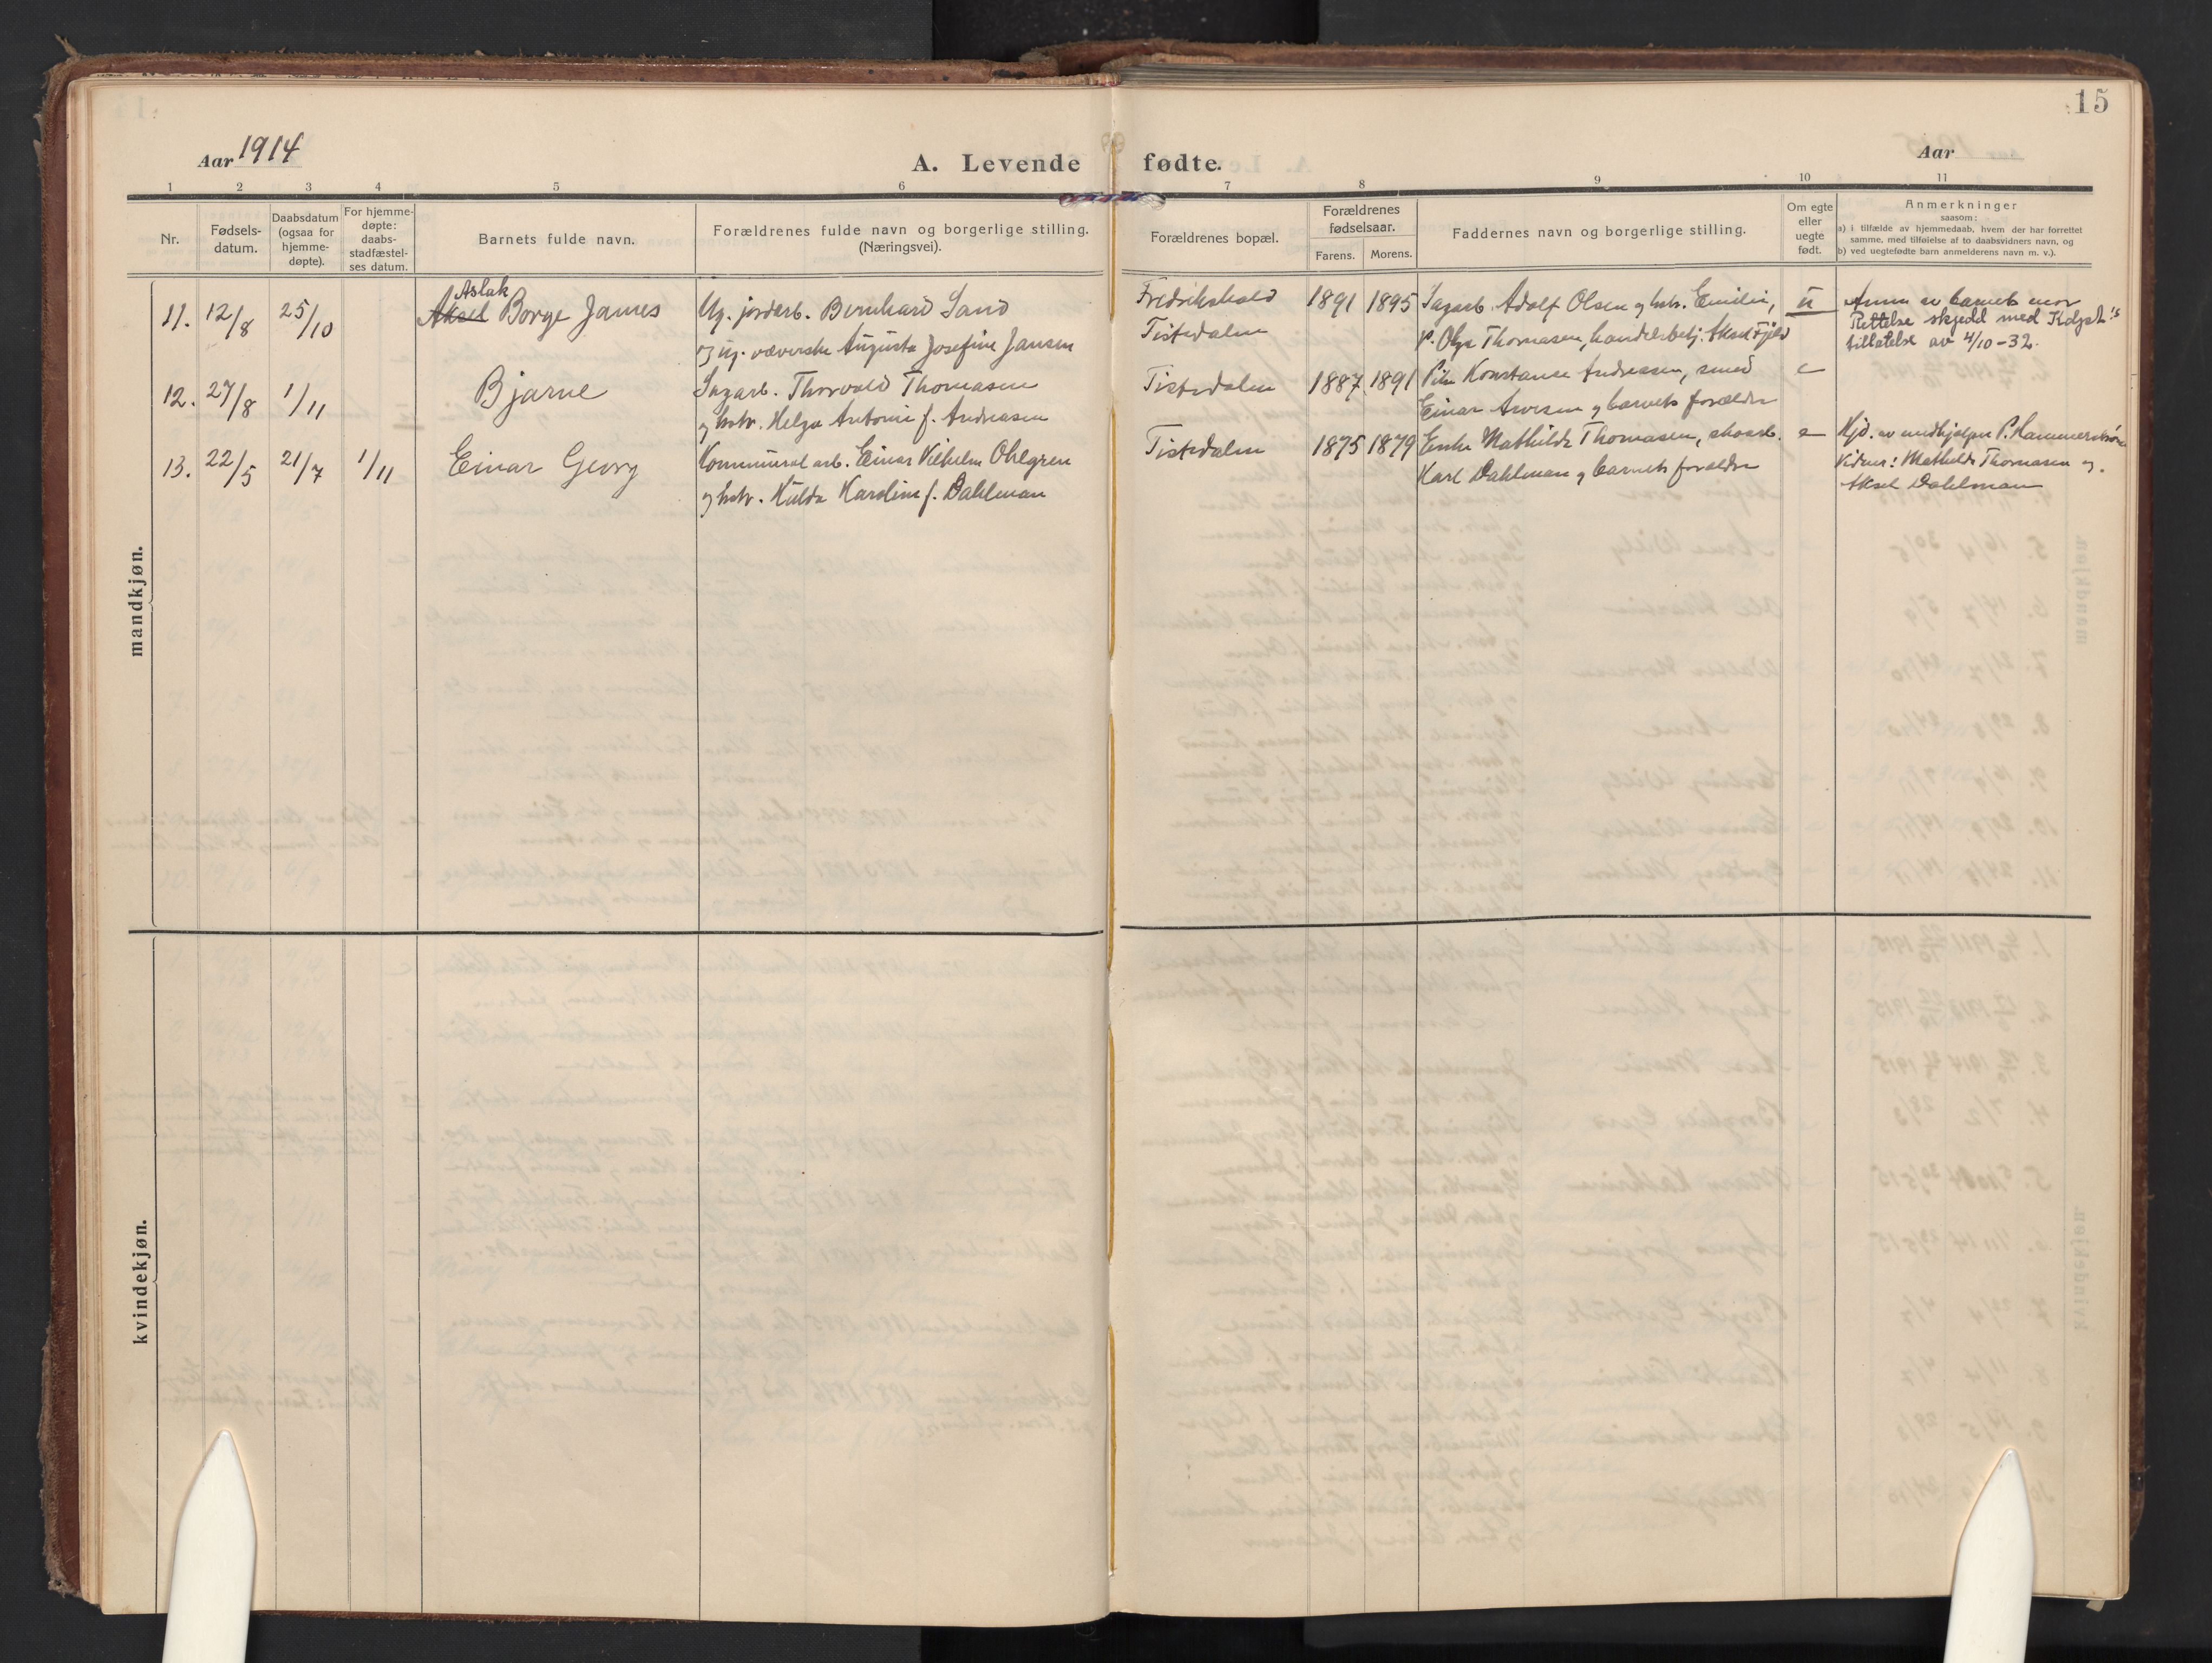 15
Aar 1914
A. Levende fødte.
Aar
1 2 3 4 5 6 7 8 9 10 11
Nr.
Fødsels-
datum.
Daabsdatum
(ogsaa for
hjemme-
døpte).
For hjemme-
døpte:
daabs-
stadfæstel-
ses datum.
Barnets fulde navn.
Forældrenes fulde navn og borgerlige stilling.
(Næringsvei).
Forældrenes bopæl.
Forældrenes
fødselsaar.
Farens. Morens.
Faddernes navn og borgerlige stilling.
Om egte
eller
uegte
født.
Anmerkninger
saasom:
a) i tilfælde av hjemmedaab, hvem der har forrettet
samme, med tilføielse af to daabsvidners navn, og
b) ved uegtefødte barn anmelderens navn m. v.).
mandkjøn.
11. 12/8 25/10
Aslak
Aksel Borge James
Ug. jordarb. Bernhard Sand
og ug. væverske Augusta Josefine Jansen
Fredrikshald
Tistedalen
1891 1895
Sagarb. Adolf Olsen og hstr. Emilie,
p. Olga Thomasen, handelsbetj. Aksel Fjeld
u
Anm. av barnets mor
Rettelse skjedd med Kdpt's
tillatelse av 4/10-32.
12. 27/8 1/11
Bjarne
Sagarb. Thorvald Thomasen
og hstr. Helga Antonie f. Andreasen
Tistedalen
1887 1891
Pike Konstanse Andreasen, smed
Einar Arvesen og barnets forældre
e
13. 22/5 21/7 1/11
Einar Georg
Kommunal arb. Einar Vilhelm Ohlgren
og hstr. Hulda Karoline f. Dahlman
Tistedalen
1875 1879
Enke Mathilde Thomasen, skoarb.
Karl Dahlman og barnets forældre
e
Hjd. av emdhjelper P. Hammerstrøm
Vidner: Mathilde Thomasen og
Aksel Dahlman
kvindekjøn.